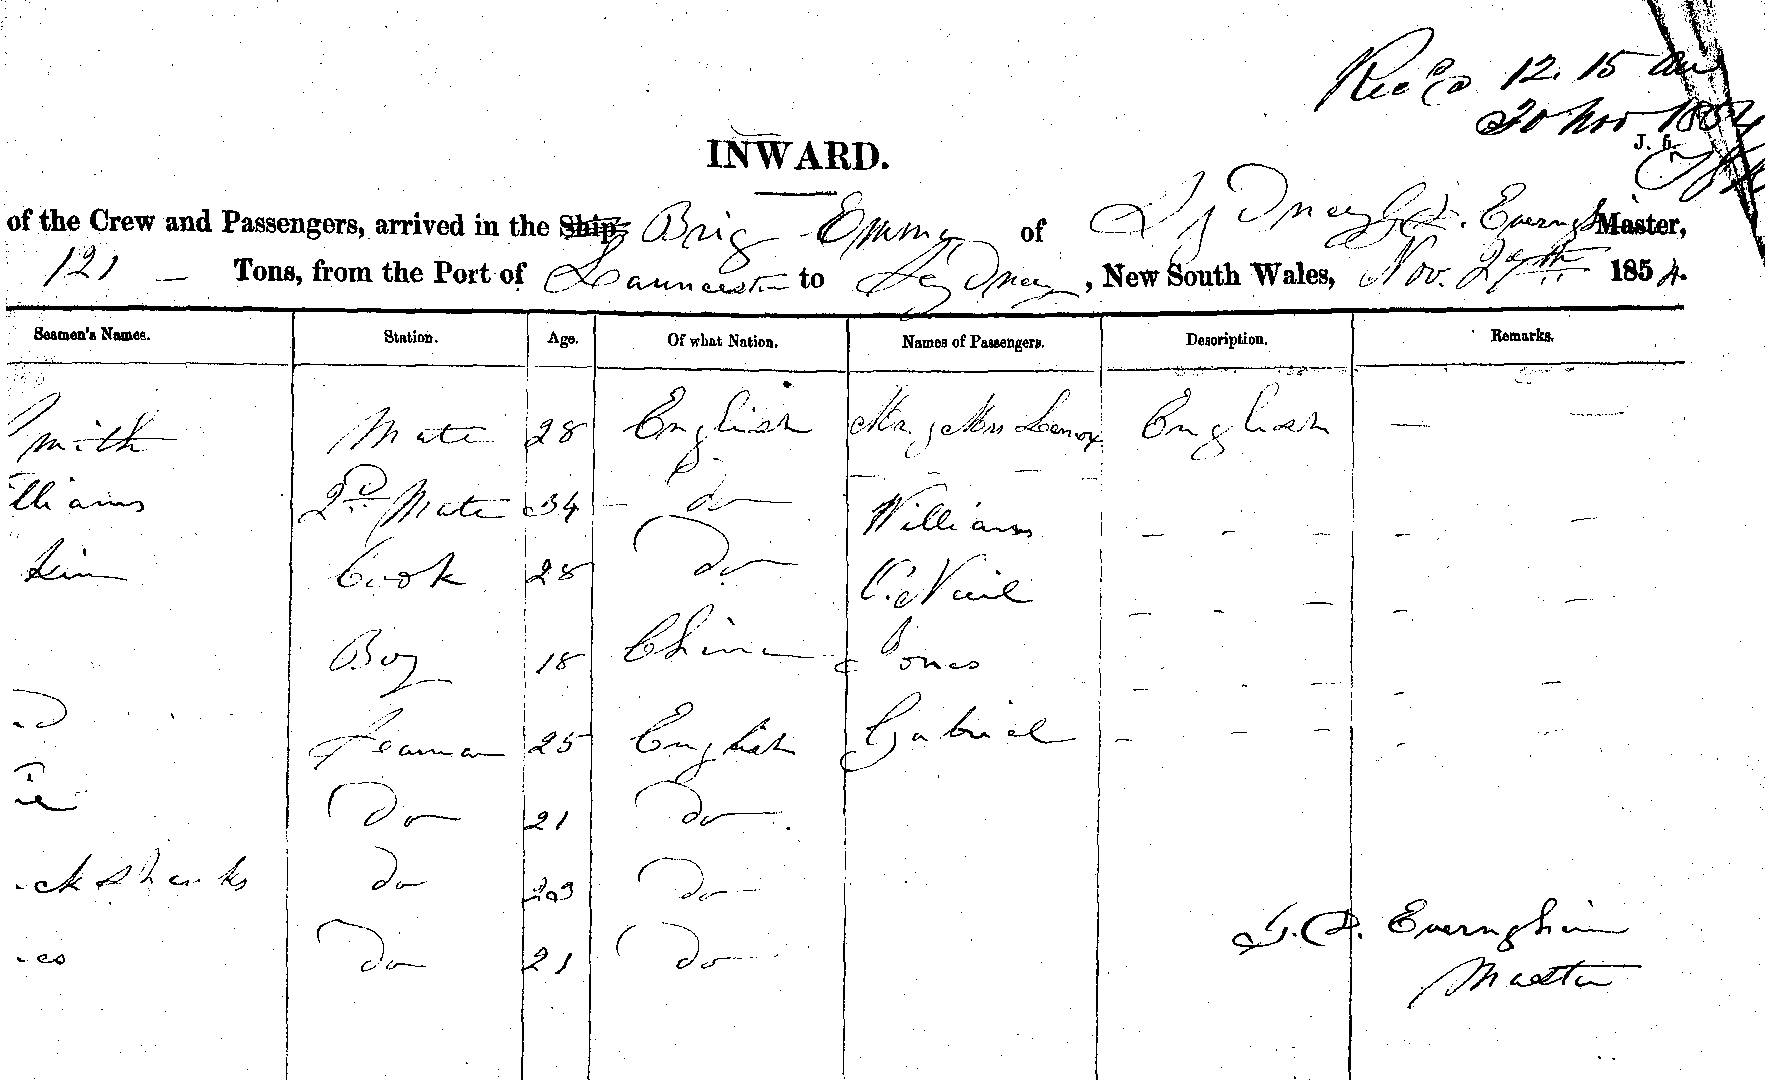 Recd 12.15 am
30 Nov 1854
INWARD.
of the Crew and Passengers, arrived in the Ship Brig Emma of Sydney Everingh Master,
121 — Tons, from the Port of Launceston to Sydney, New South Wales, Nov. 29th 1854.
Seamen's Names. Station. Age. Of what Nation. Names of Passengers. Description. Remarks.
mith Mate 28 English Mr & Mrs Lenox English —
lliams 2nd Mate 34 do Williams
Cook 28 Do O'Niel
Boy 18 China Jones
Seaman 25 English Gabriel
Do 21 Do
ckshanks do 23 Do
es Do 21 Do
Everingham
Master